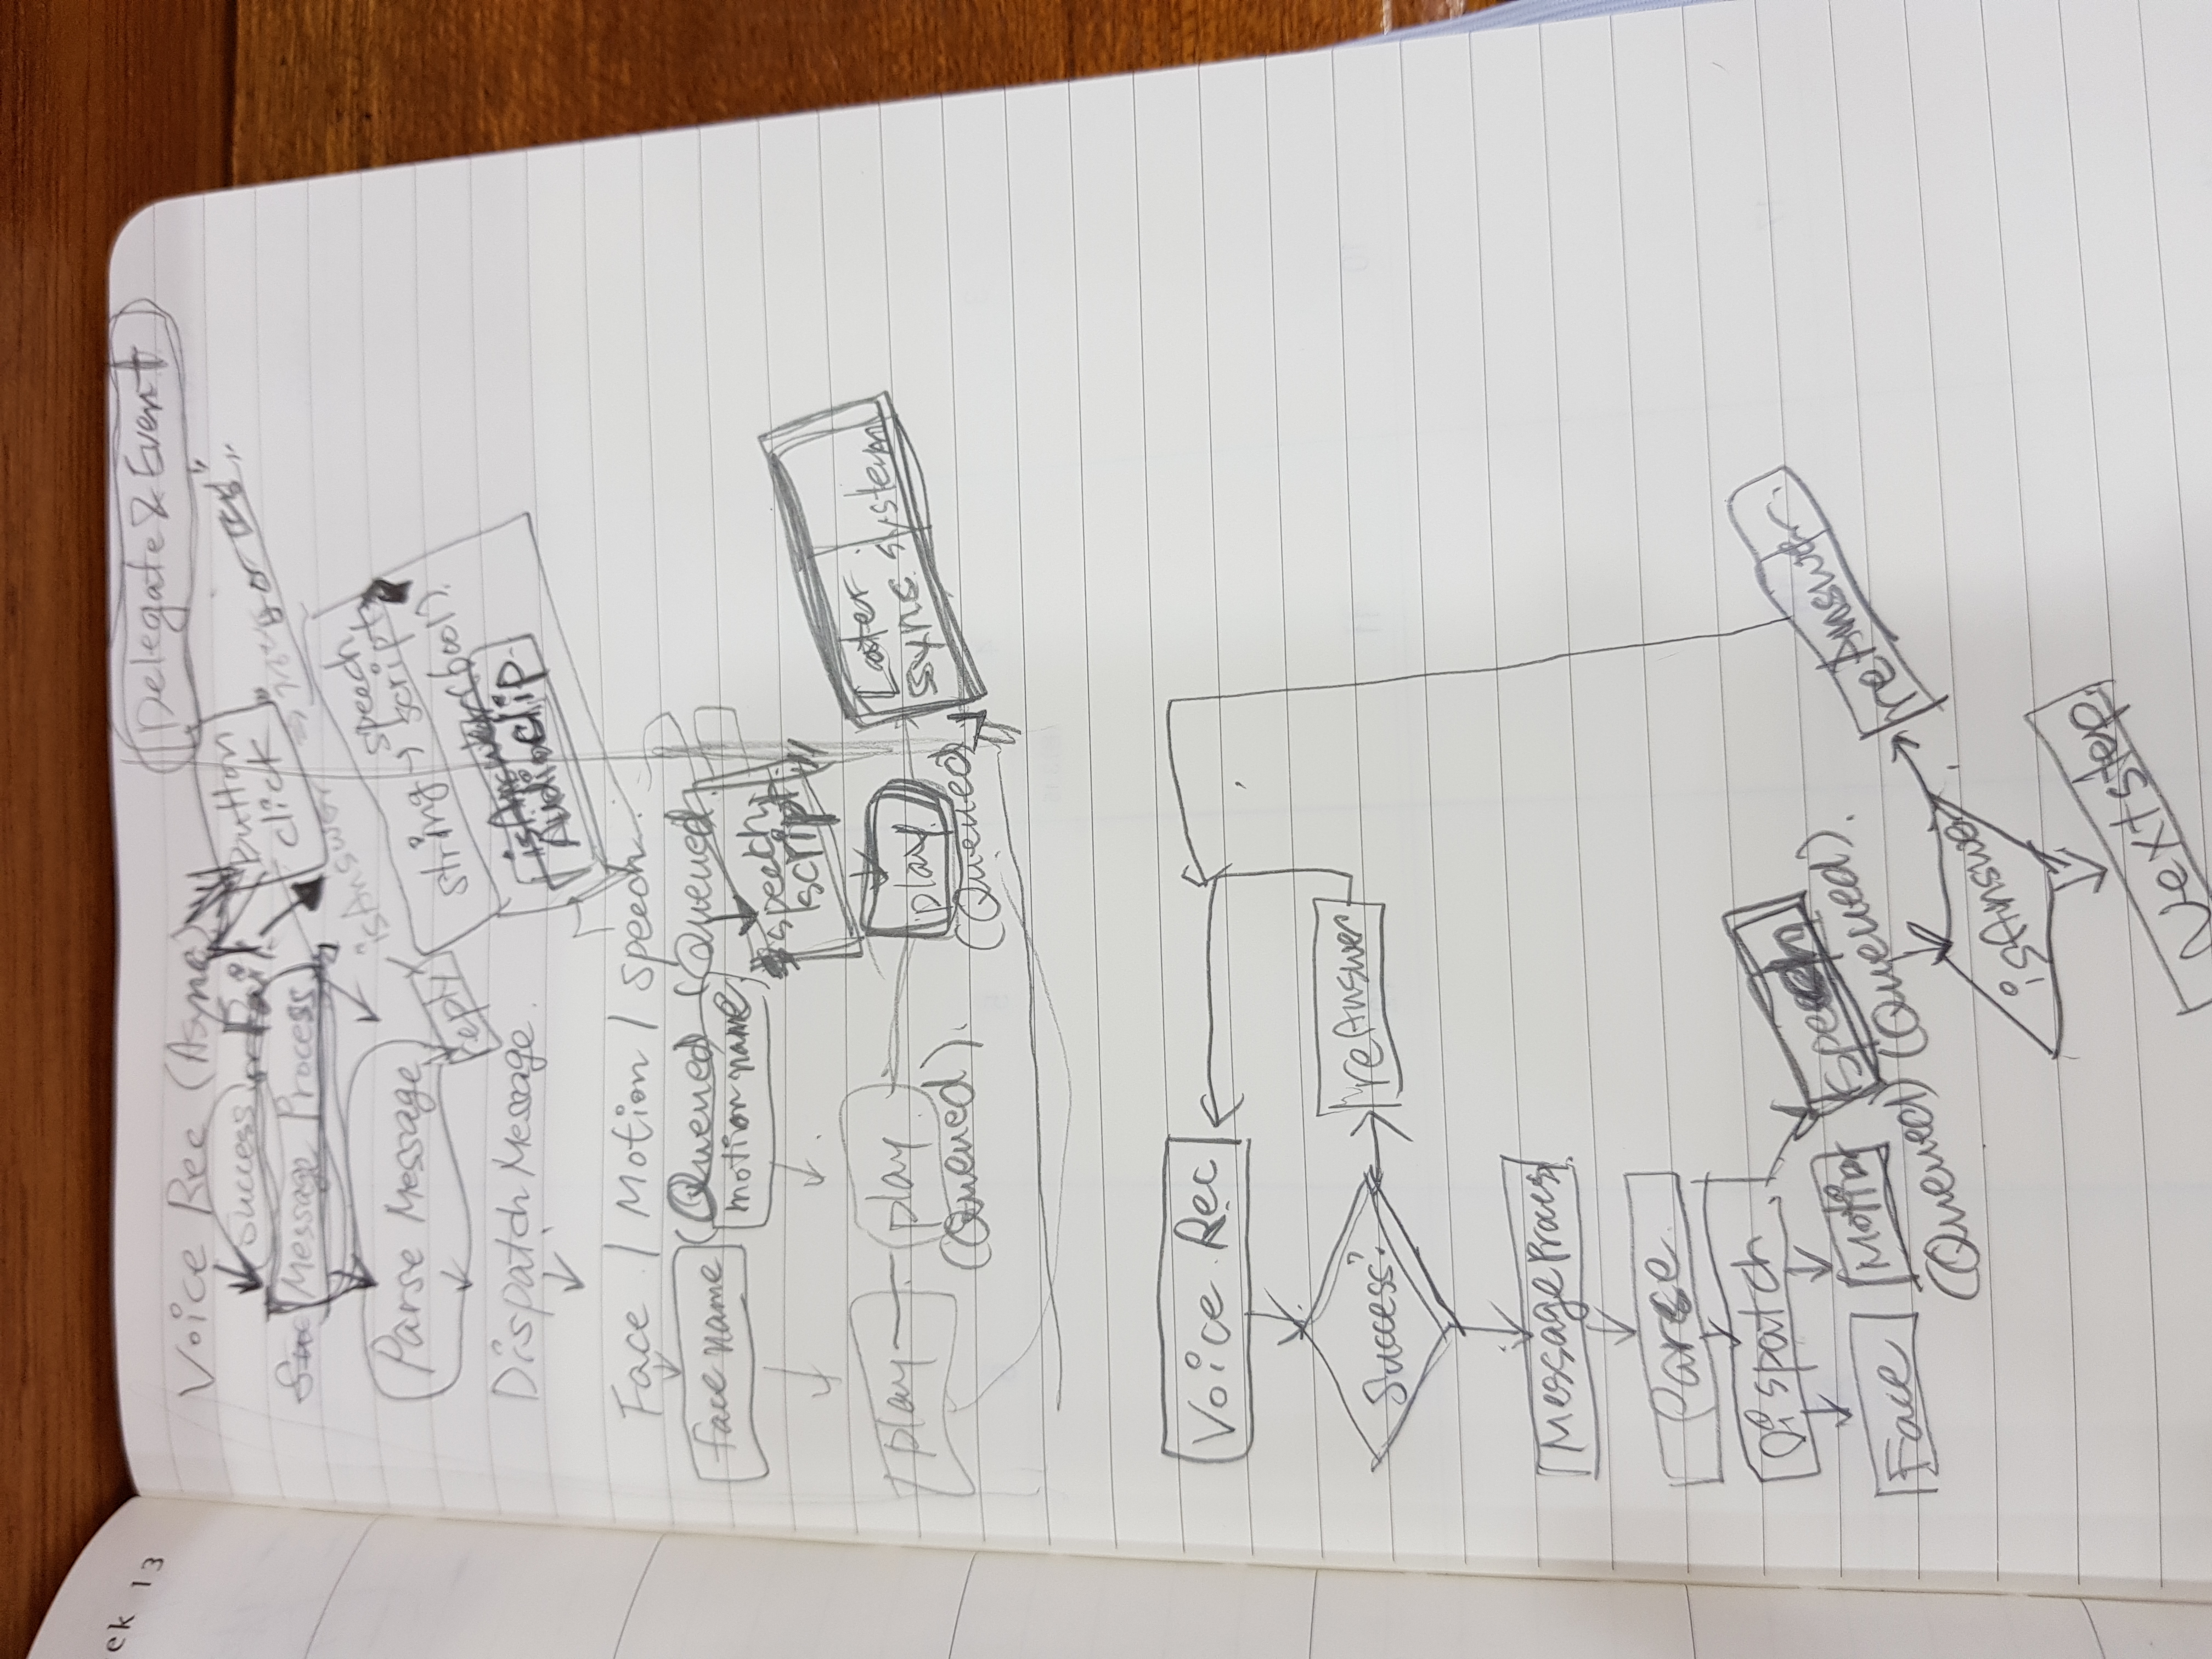 ek 13
Delegate & Event
Voice Rec (Async)
Success or Fail
Button
click
Message Process
isAnswer
or
Parse Message
reply
string → speech
script
isAnswer (bool).
Audioclip
Dispatch Message.
Face / Motion / Speech.
face name
(Queued)
motion name
(Queued)
speech
script
play
play
(Queued).
play
(Queued)
Later
sync system
Voice Rec
Success?
reAnswer
Message Process
Parse
Dispatch
Face
Motion
(Queued)
speech
(Queued).
isAnswer
reAnswer.
Next step.